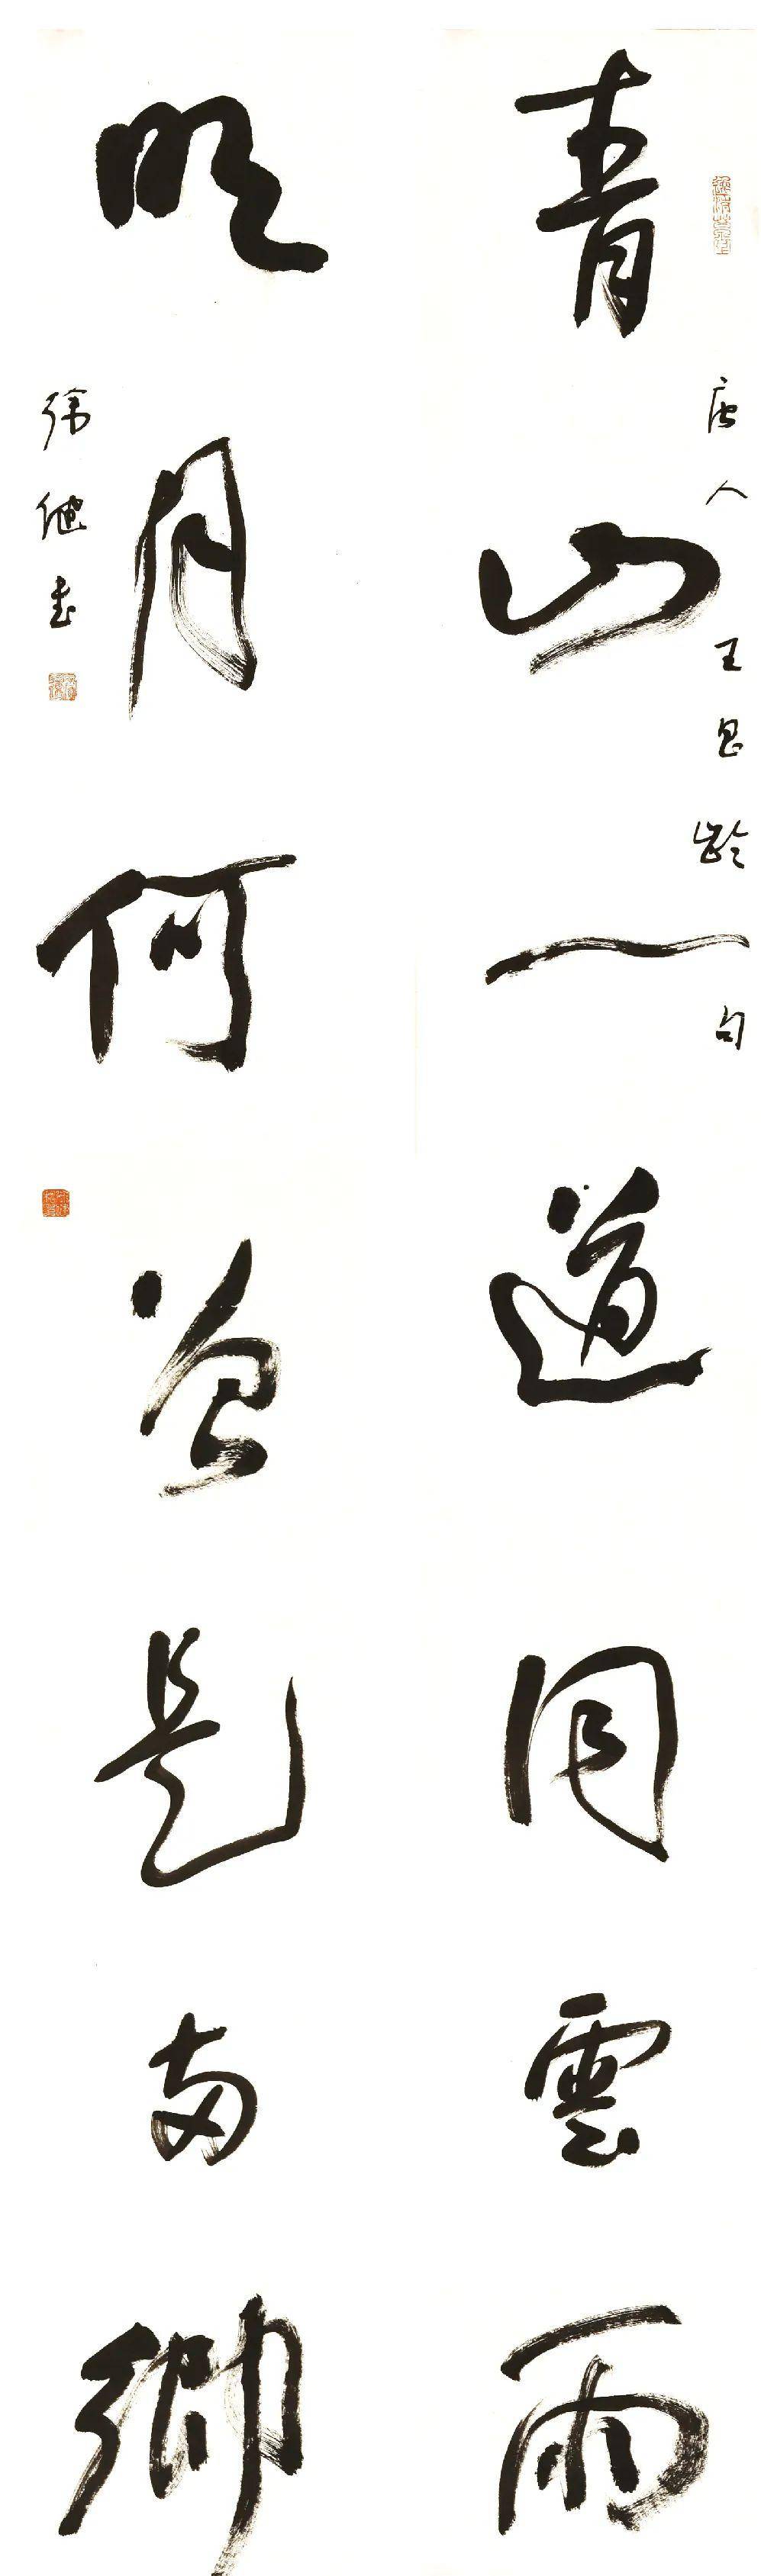 青山一道同雲雨
唐人王昌齡句
明月何曾是兩鄉